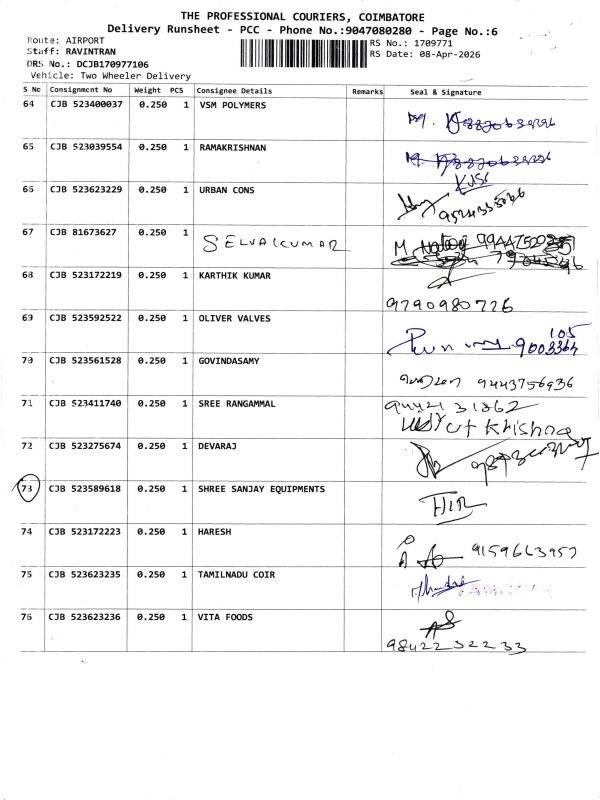 THE PROFESSIONAL COURIERS, COIMBATORE
Delivery Runsheet - PCC - Phone No.:9047080280 - Page No.:6
Route: AIRPORT
Staff: RAVINTRAN
DRS No.: DCJB170977106
Vehicle: Two Wheeler Delivery
RS No.: 1709771
RS Date: 08-Apr-2026
S No Consignment No Weight PCS Consignee Details Remarks Seal & Signature
64 CJB 523400037 0.250 1 VSM POLYMERS
65 CJB 523039554 0.250 1 RAMAKRISHNAN
66 CJB 523623229 0.250 1 URBAN CONS
67 CJB 81673627 0.250 1 SELVAKUMAR
68 CJB 523172219 0.250 1 KARTHIK KUMAR
9790980776
69 CJB 523592522 0.250 1 OLIVER VALVES
70 CJB 523561528 0.250 1 GOVINDASAMY 9443756936
71 CJB 523411740 0.250 1 SREE RANGAMMAL 9442131862
Krishna
72 CJB 523275674 0.250 1 DEVARAJ
73 CJB 523589618 0.250 1 SHREE SANJAY EQUIPMENTS
74 CJB 523172223 0.250 1 HARESH 9159663957
75 CJB 523623235 0.250 1 TAMILNADU COIR
76 CJB 523623236 0.250 1 VITA FOODS
9842232233